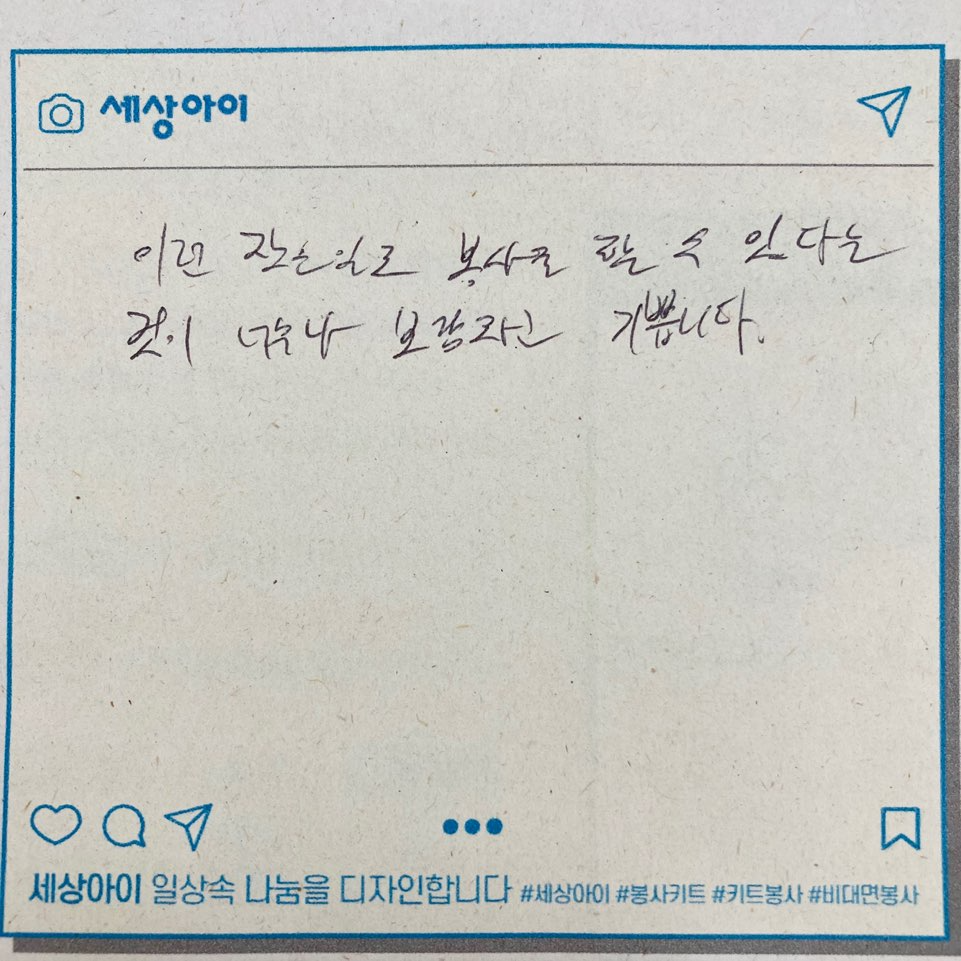 세상아이
이런 작은일로 봉사를 할 수 있다는
것이 너무나 보람차고 기쁩니다.
세상아이 일상속 나눔을 디자인합니다 #세상아이 #봉사키트 #키트봉사 #비대면봉사